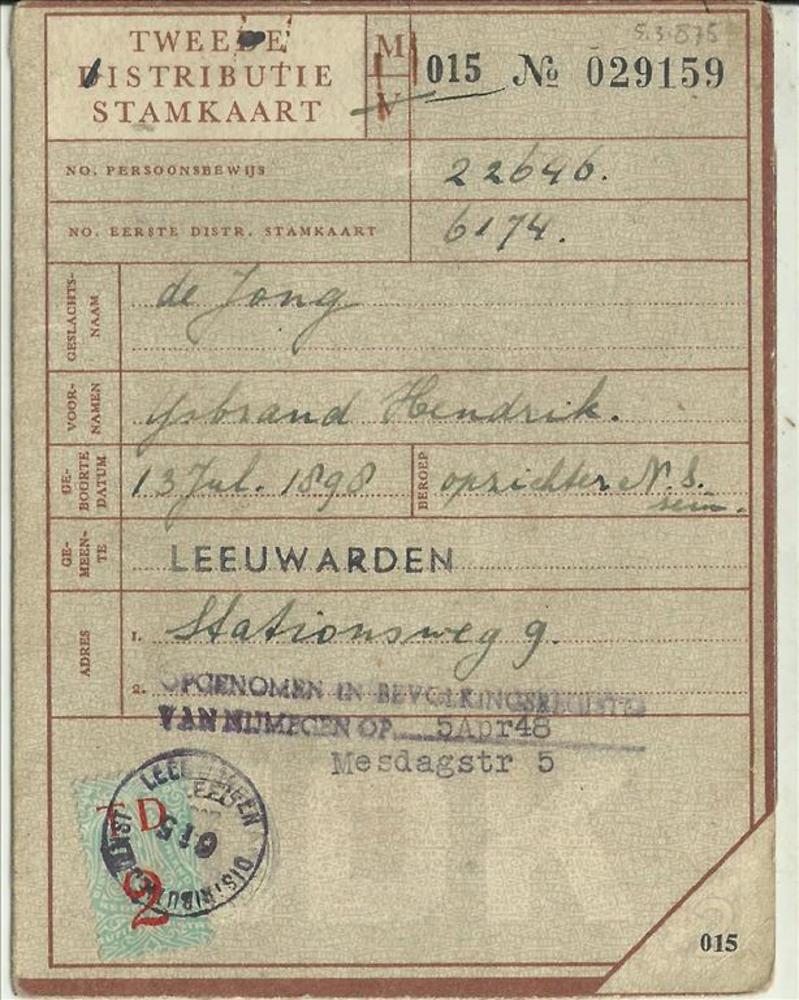 5.3.875
TWEEDE
DISTRIBUTIE
STAMKAART
M
V
015 № 029159
NO. PERSOONSBEWIJS
22646.
NO. EERSTE DISTR. STAMKAART
6174.
GESLACHTS-
NAAM
de Jong
VOOR-
NAMEN
Ysbrand Hendrik.
GE-
BOORTE
DATUM
13 Jul. 1898
BEROEP
opzichter N.S.
sein.
GE-
MEEN-
TE
LEEUWARDEN
ADRES
1. Stationsweg 9.
2.
OPGENOMEN IN BEVOLKINGSREGISTER
VAN NIJMEGEN OP 5Apr48
Mesdagstr 5
LEEUWARDEN
T D
015
DISTRIBUTIEDIENST
2
015